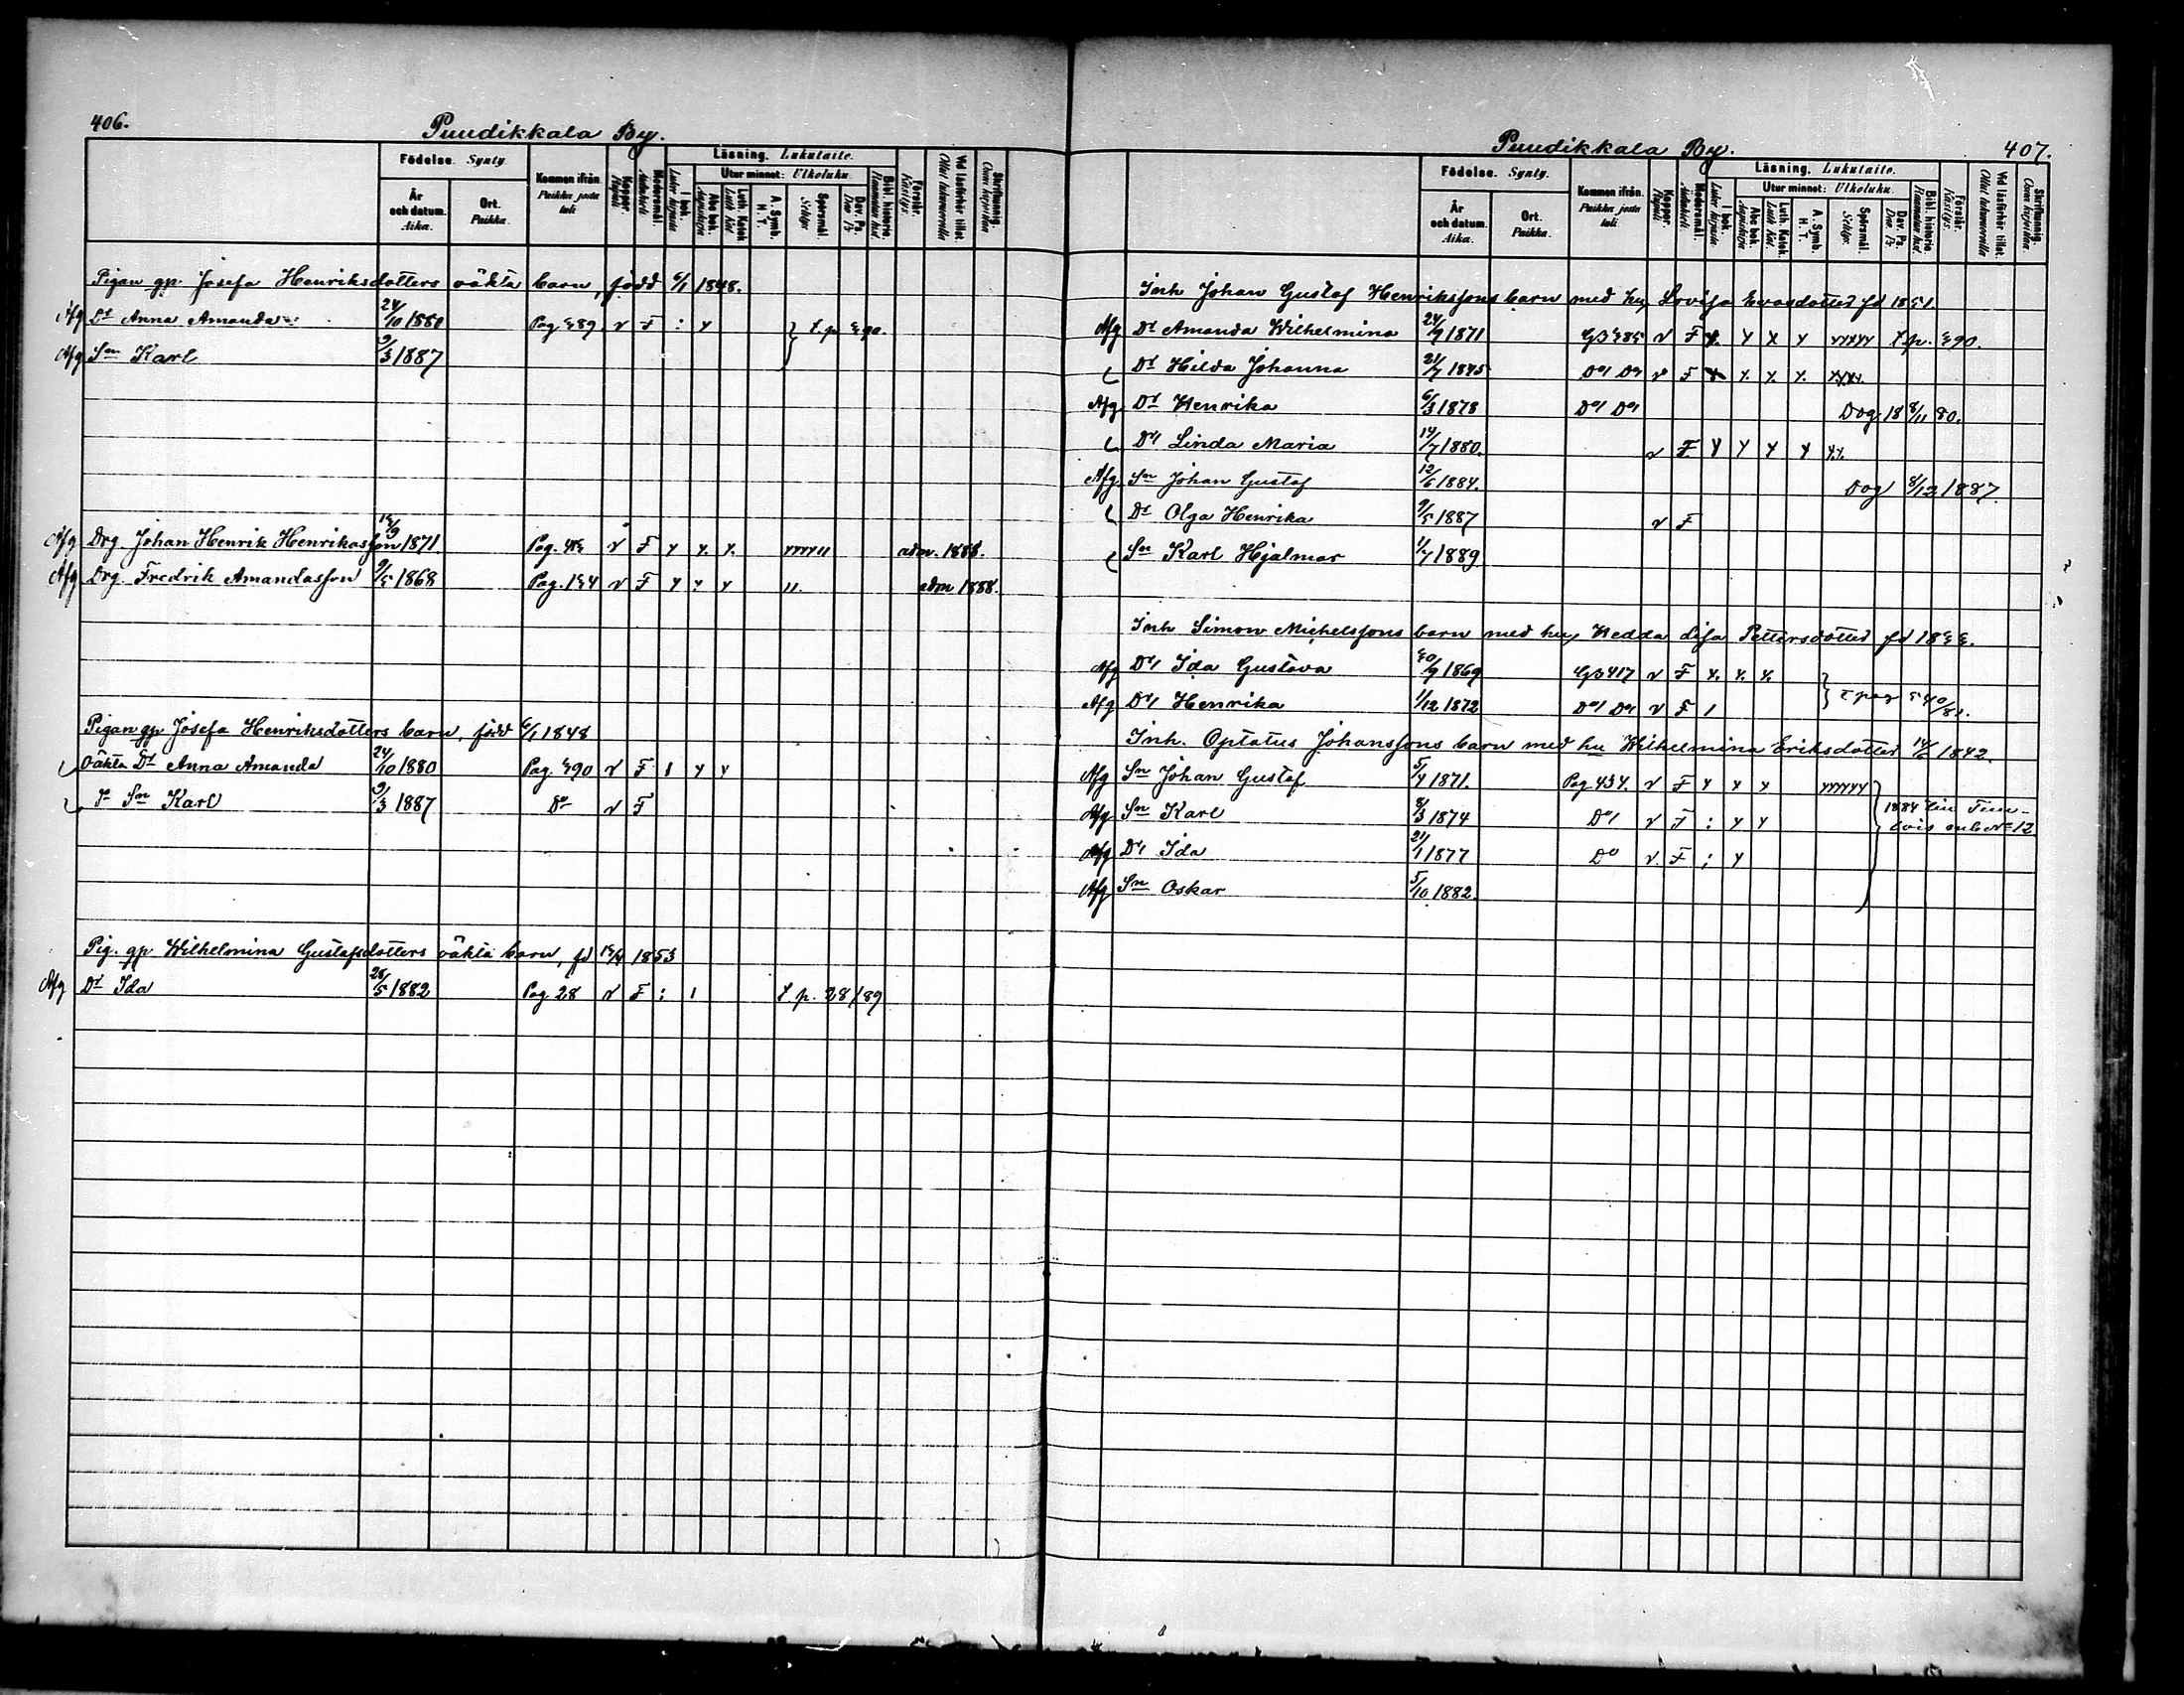 406.
Puudikkala By.
Födelse. Synty.
År och datum. Aika.
Ort. Paikka.
Kommen ifrån. Paikka josta tuli
Koppor. Rupuli
Modersmål.
Läsning. Lukutaito.
I bok.
Utur minnet: Ulkoluku.
Abc bok.
Luth. Katek.
A. Symb. H. T.
Spörsmål.
Dav. Ps.
Bibl. historia.
Förstår. Käsitys.
Vid läsförhör tillst.
Skriftkunnig.
Pigan gp Josefa Henriksdotters oäkta barn, född 6/1 1848.
Afg Dr Anna Amanda 24/10 1880 Pag 389 v F : y
Afg Sn Karl 9/3 1887
Afg Drg. Johan Henrik Henriksson 1871 Pag. v F y y. y. adm. 1888.
Afg Drg. Fredrik Amandasson 9/5 1868 Pag. 154 v F y y y 11. adm 1888.
Pigan gp Josefa Henriksdotters barn, född 6/1 1848
Oäkta Dr Anna Amanda 24/10 1880 Pag. 390 v F y y
Sn Karl 9/3 1887 Do v F
Pig. gp Wilhelmina Gustafsdotters oäkta barn, fd 1853
Afg Dr Ida 28/5 1882 Pag 28 v F : 1 t p. 28/89
Puudikkala By.
407.
Födelse. Synty.
År och datum. Aika.
Ort. Paikka.
Kommen ifrån. Paikka josta tuli.
Koppor. Rupuli
Modersmål.
Läsning. Lukutaito.
I bok.
Utur minnet: Ulkoluku.
Abc bok.
Luth. Katek.
A. Symb. H. T.
Spörsmål.
Dav. Ps.
Bibl. historia.
Förstår. Käsitys.
Vid läsförhör tillst.
Skriftkunnig.
Inh Johan Gustaf Henrikssons barn med hu Lovisa Evasdotter fd 1851.
Afg Dr Amanda Wilhelmina 24/9 1871 v F y x y t p. 390.
Dr Hilda Johanna 21/7 1875 Do Do v F
Afg. Dr Henrika 6/3 1878 Do Do Dog 18 8/11 80.
Dr Linda Maria 14/7 1880. v F y y y y
Afg. Sn Johan Gustaf 12/6 1884. Dog 8/12 1887.
Dr Olga Henrika 9/5 1887 v F
Sn Karl Hjalmar 1/7 1889
Inh Simon Michelssons barn med hu Hedda Lisa Pettersdotter fd
Afg Dr Ida Gustava 1869 GB 417 v F
Afg Dr Henrika 1/12 1872 Do Do v F 1
Inh. Optatus Johanssons barn med hu Wilhelmina Eriksdotter 1842.
Afg Sn Johan Gustaf 5/4 1871. Pag 434. v F y y y
Afg Sn Karl 8/3 1874 Do v F : y y 1884
Afg Dr Ida 21/1 1877 Do v F ; y
Afg Sn Oskar 5/10 1882.